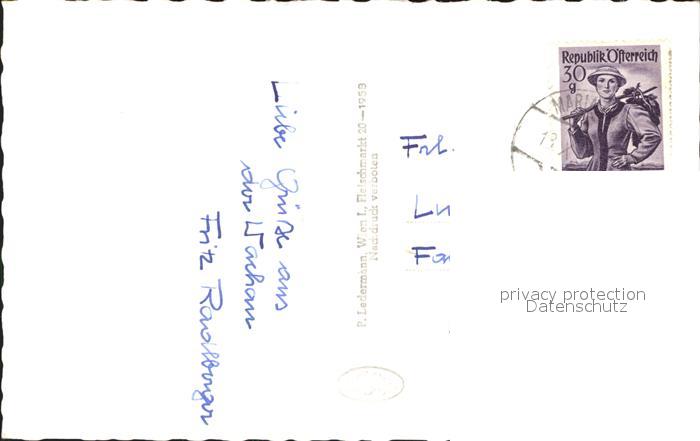 Liebe Grüße aus
der Wachau
Fritz
P. Ledermann, Wien I., Fleischmarkt 20—1958
Nachdruck verboten
Republik Österreich
30
g
MARI
Frl.
privacy protection
Datenschutz